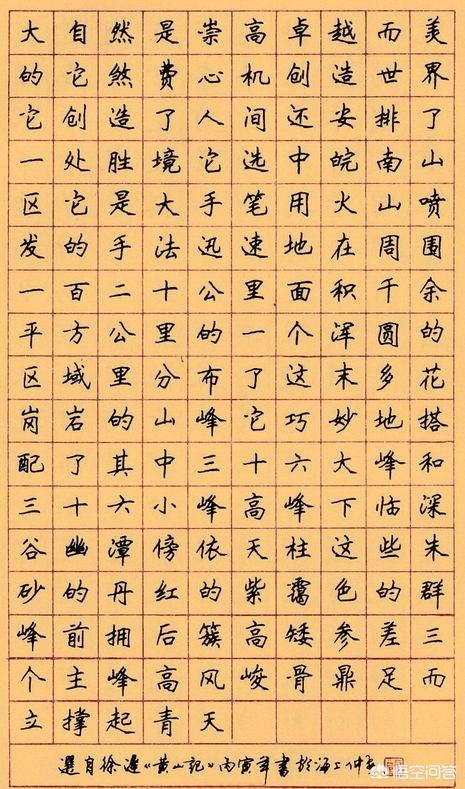 大自然是崇高卓越而美
的它煞费心机创造世界
它创造了人间还安排了
一处胜境它选中皖南山
区它是大手笔用火山喷
发的手法迅速地在周围
一百二十公里面积千余
平方公里的一个浑圆的
区域里分布了这末多花
岗岩的山峰它巧妙地搭
配了其中三十六大峰和
三十六小峰高峰下临深
谷幽潭傍依天柱这些朱
砂的丹红的紫霭色的群
峰前拥后簇高矮参差三
个主峰高风峻骨鼎足而
立撑起青天
選自徐遲《黄山記》丙寅年書於海上
悟空问答